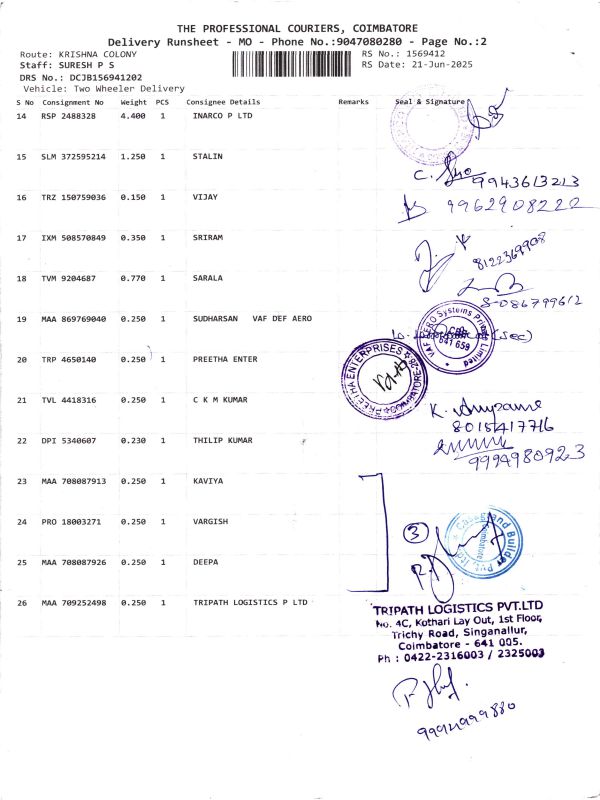 THE PROFESSIONAL COURIERS, COIMBATORE
Delivery Runsheet - MO - Phone No.:9047080280 - Page No.:2
Route: KRISHNA COLONY RS No.: 1569412
Staff: SURESH P S RS Date: 21-Jun-2025
DRS No.: DCJB156941202
Vehicle: Two Wheeler Delivery
S No Consignment No Weight PCS Consignee Details Remarks Seal & Signature
14 RSP 2488328 4.400 1 INARCO P LTD
15 SLM 372595214 1.250 1 STALIN
C.
9943613213
16 TRZ 150759036 0.150 1 VIJAY
9962908220
17 IXM 508570849 0.350 1 SRIRAM
8122369908
18 TVM 9204687 0.770 1 SARALA
19 MAA 869769040 0.250 1 SUDHARSAN VAF DEF AERO
VAF AERO Systems Private Limited
641 659
(sec)
20 TRP 4650140 0.250 1 PREETHA ENTER
PREETHA ENTERPRISES
COIMBATORE-28
21 TVL 4418316 0.250 1 C K M KUMAR
K.
8015417716
22 DPI 5340607 0.230 1 THILIP KUMAR
9994980923
23 MAA 708087913 0.250 1 KAVIYA
24 PRO 18003271 0.250 1 VARGISH
3
Casagrand Builder Pvt. Ltd
Coimbatore
25 MAA 708087926 0.250 1 DEEPA
26 MAA 709252498 0.250 1 TRIPATH LOGISTICS P LTD
TRIPATH LOGISTICS PVT.LTD
No. 4C, Kothari Lay Out, 1st Floor,
Trichy Road, Singanallur,
Coimbatore - 641 005.
Ph : 0422-2316003 / 2325003